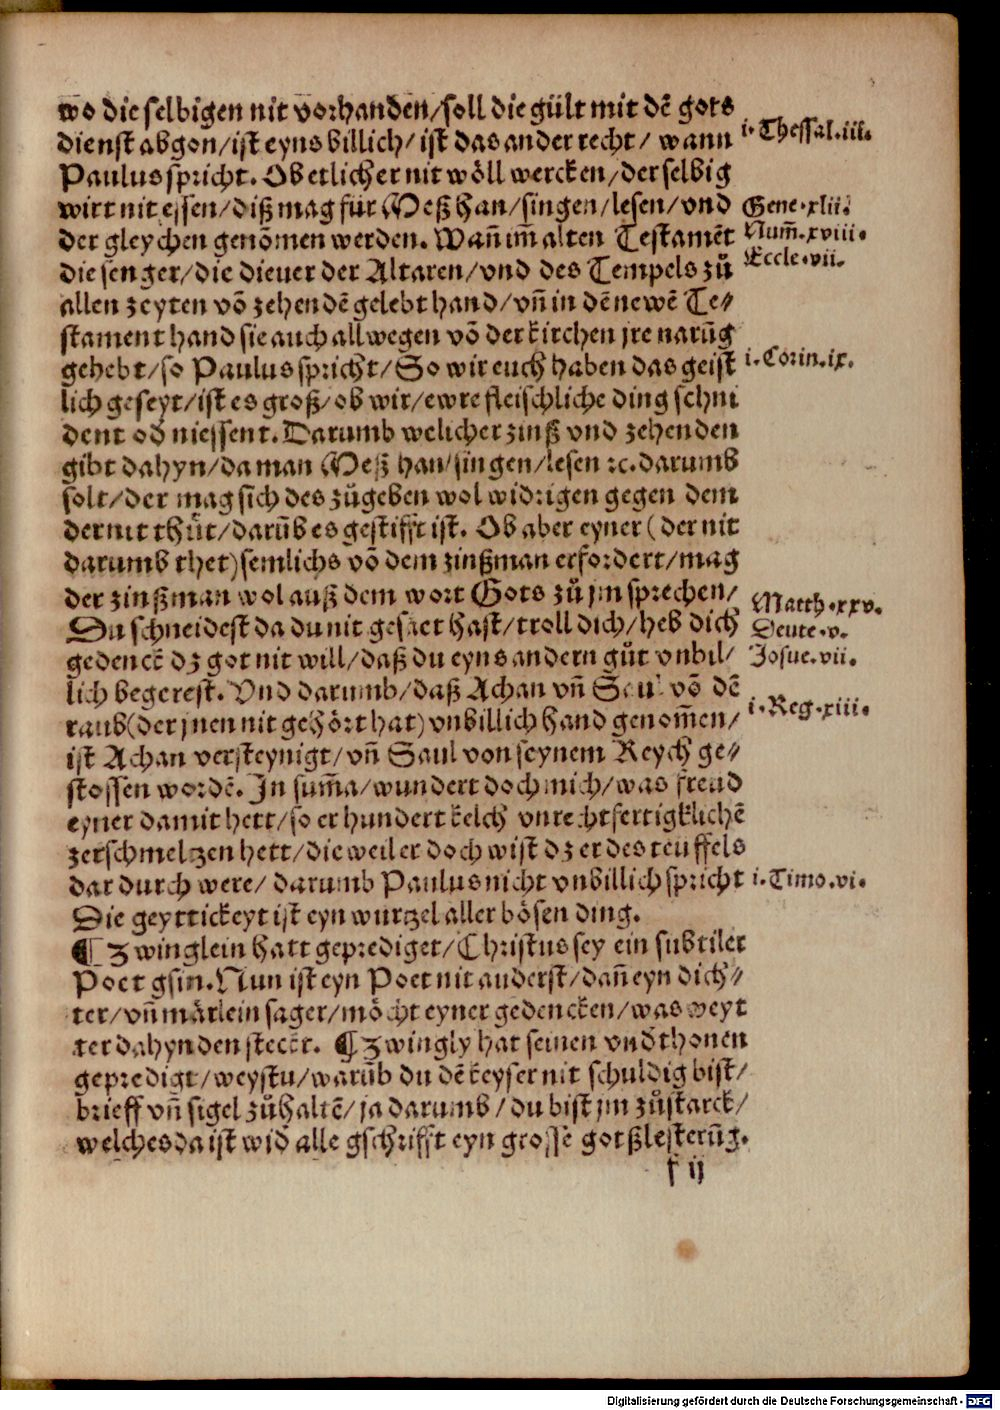 wo die selbigen nit vorhanden/soll die gült mit dē gots
dienst abgon/ist eyns billich/ ist das ander recht/ wann
Paulus spricht. Ob etlicher nit wöll wercken/der selbig
wirt nit essen/diß mag für Meß han/singen/lesen/vnd
der gleychen genōmen werden. Wañ im̄ alten Testamēt
die senger/die diener der Altaren/vnd des Tempels zů
allen zeyten vō zehendē gelebt hand/vñ in dē newē Te⸗
stament hand sie auch allwegen vō der kirchen jre narūg
gehebt/so Paulus spricht/So wir euch haben das geist
lich geseyt/ist es groß/ob wir/ewre fleischliche ding schni
dent od niessent. Darumb welicher zinß vnd zehenden
gibt dahyn/da man Meß han/singen/lesen ꝛc. darumb
solt/der mag sich des zůgeben wol widrigen gegen dem
der nit thůt/darūb es gestifft ist. Ob aber eyner (der nit
darumb thet) semlichs vō dem zinßman erfordert/mag
der zinßman wol auß dem wort Gots zů jm sprechen/
Du schneidest da du nit gesäet hast/troll dich/heb dich
gedencē dz got nit will/daß du eyns andern gůt vnbil/
lich begerest. Vnd darumb/daß Achan vñ Saul vō dē
raub(der jnen nit gehört hat) vnbillich hand genom̄en/
ist Achan versteynigt/vñ Saul von seynem Reych ge⸗
stossen wordē. In sum̄a/wundert doch mich/was freud
eyner damit hett/so er hundert kelch vnrechtfertigklichē
zerschmeltzen hett/die weil er doch wist dz er des teuffels
dar durch were/ darumb Paulus nicht vnbillich spricht
Die geyttickeyt ist eyn wurtzel aller bösen ding.
¶ Zwinglein hatt geprediget/Christus sey ein subtiler
Poet gsin. Nun ist eyn Poet nit anderst/dañ eyn dich⸗
ter/vñ märlein sager/möcht eyner gedencken/was weyt
ter dahynden steckt. ¶ Zwingly hat seinen vnd̄thonen
gepredigt/weystu/warūb du dē keyser nit schuldig bist/
brieff vñ sigel zůhaltē/ja darumb/du bist jm zůstarck/
welches da ist wid̄ alle gschrifft eyn grosse gotßlesterūg.
f ij
i. Thessal. iii.
Gene. xlii.
Num̄. xviii.
Eccle. vii.
i. Corin. ix.
Matth. xxv.
Deute. v.
Josue. vii.
i. Reg. xiii.
i. Timo. vi.
Digitalisierung gefördert durch die Deutsche Forschungsgemeinschaft - DFG